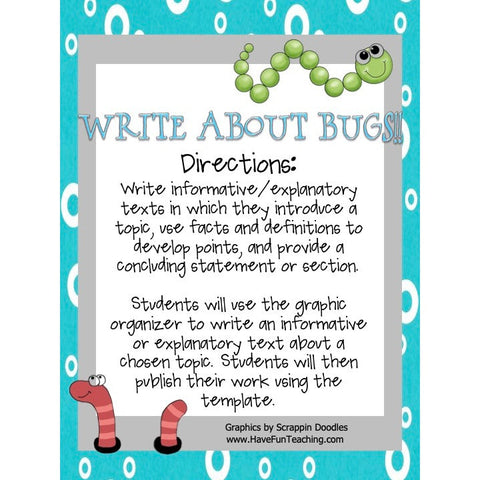 WRITE ABOUT BUGS!!
Directions:
Write informative/explanatory
texts in which they introduce a
topic, use facts and definitions to
develop points, and provide a
concluding statement or section.
Students will use the graphic
organizer to write an informative
or explanatory text about a
chosen topic. Students will then
publish their work using the
template.
Graphics by Scrappin Doodles
www.HaveFunTeaching.com